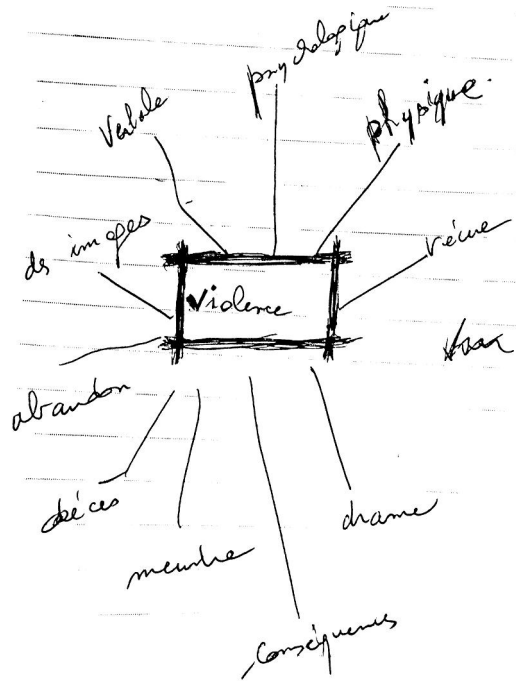 psychologique
Verbale
physique.
des images
vécue
Violence
abandon
décès
drame
meurtre
conséquences